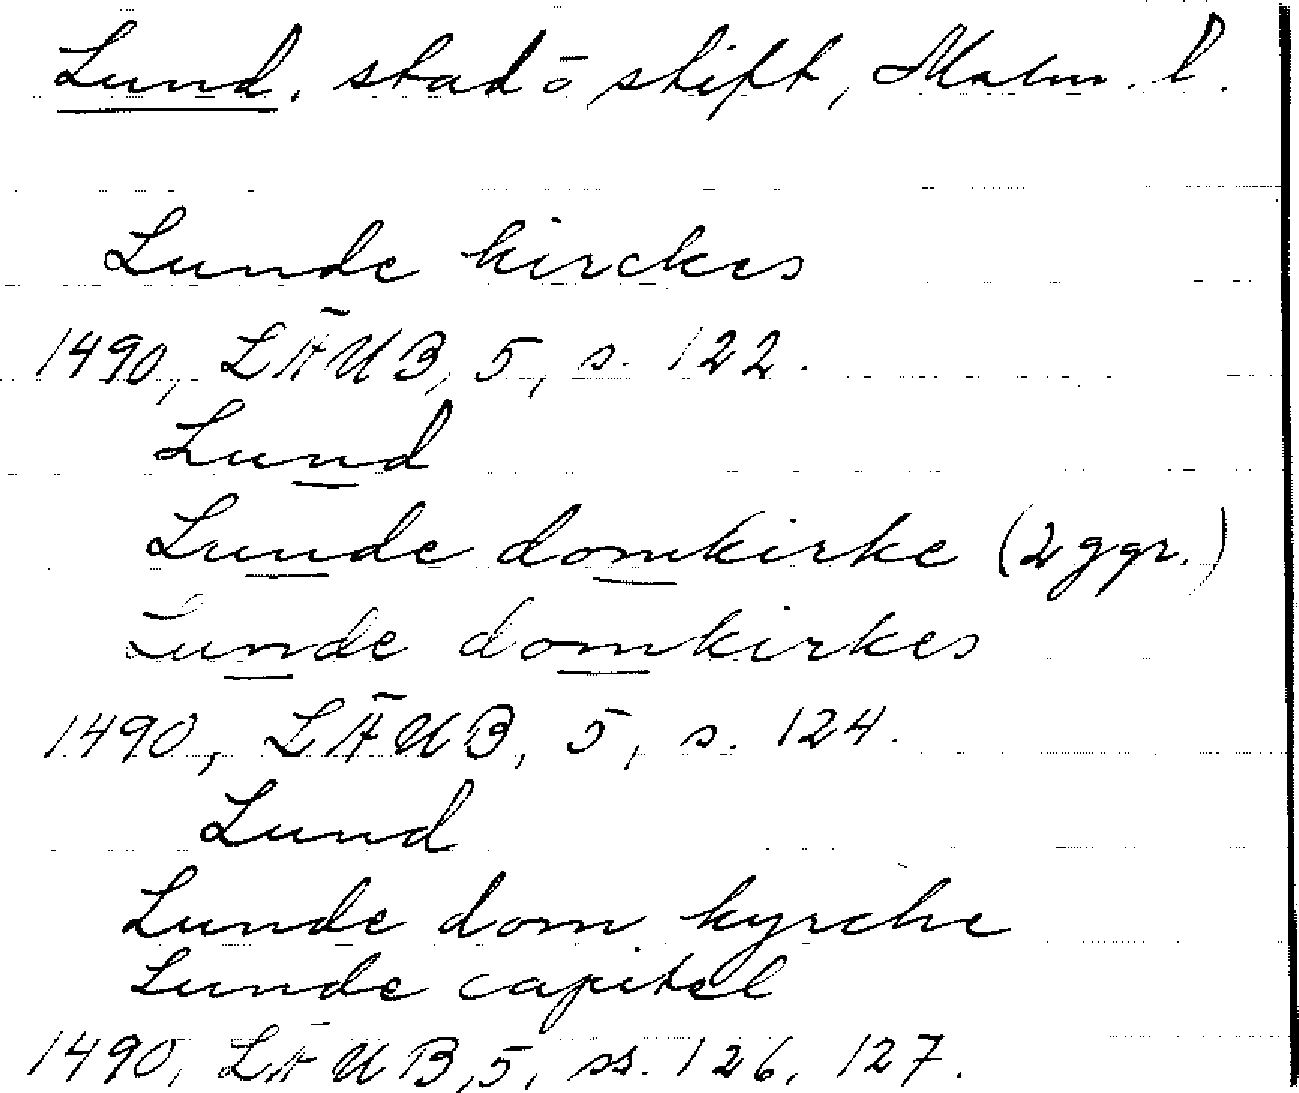 Lund. stad o̅ stift, Malm. l.
Lunde kirckes
1490, LÄUB, 5, s. 122.
Lund
Lunde domkirke (2 ggr.)
Lunde domkirkes
1490, LÄUB, 5, s. 124.
Lund
Lunde dom kyrche
Lunde capitel
1490, LÄUB, 5, ss. 126, 127.